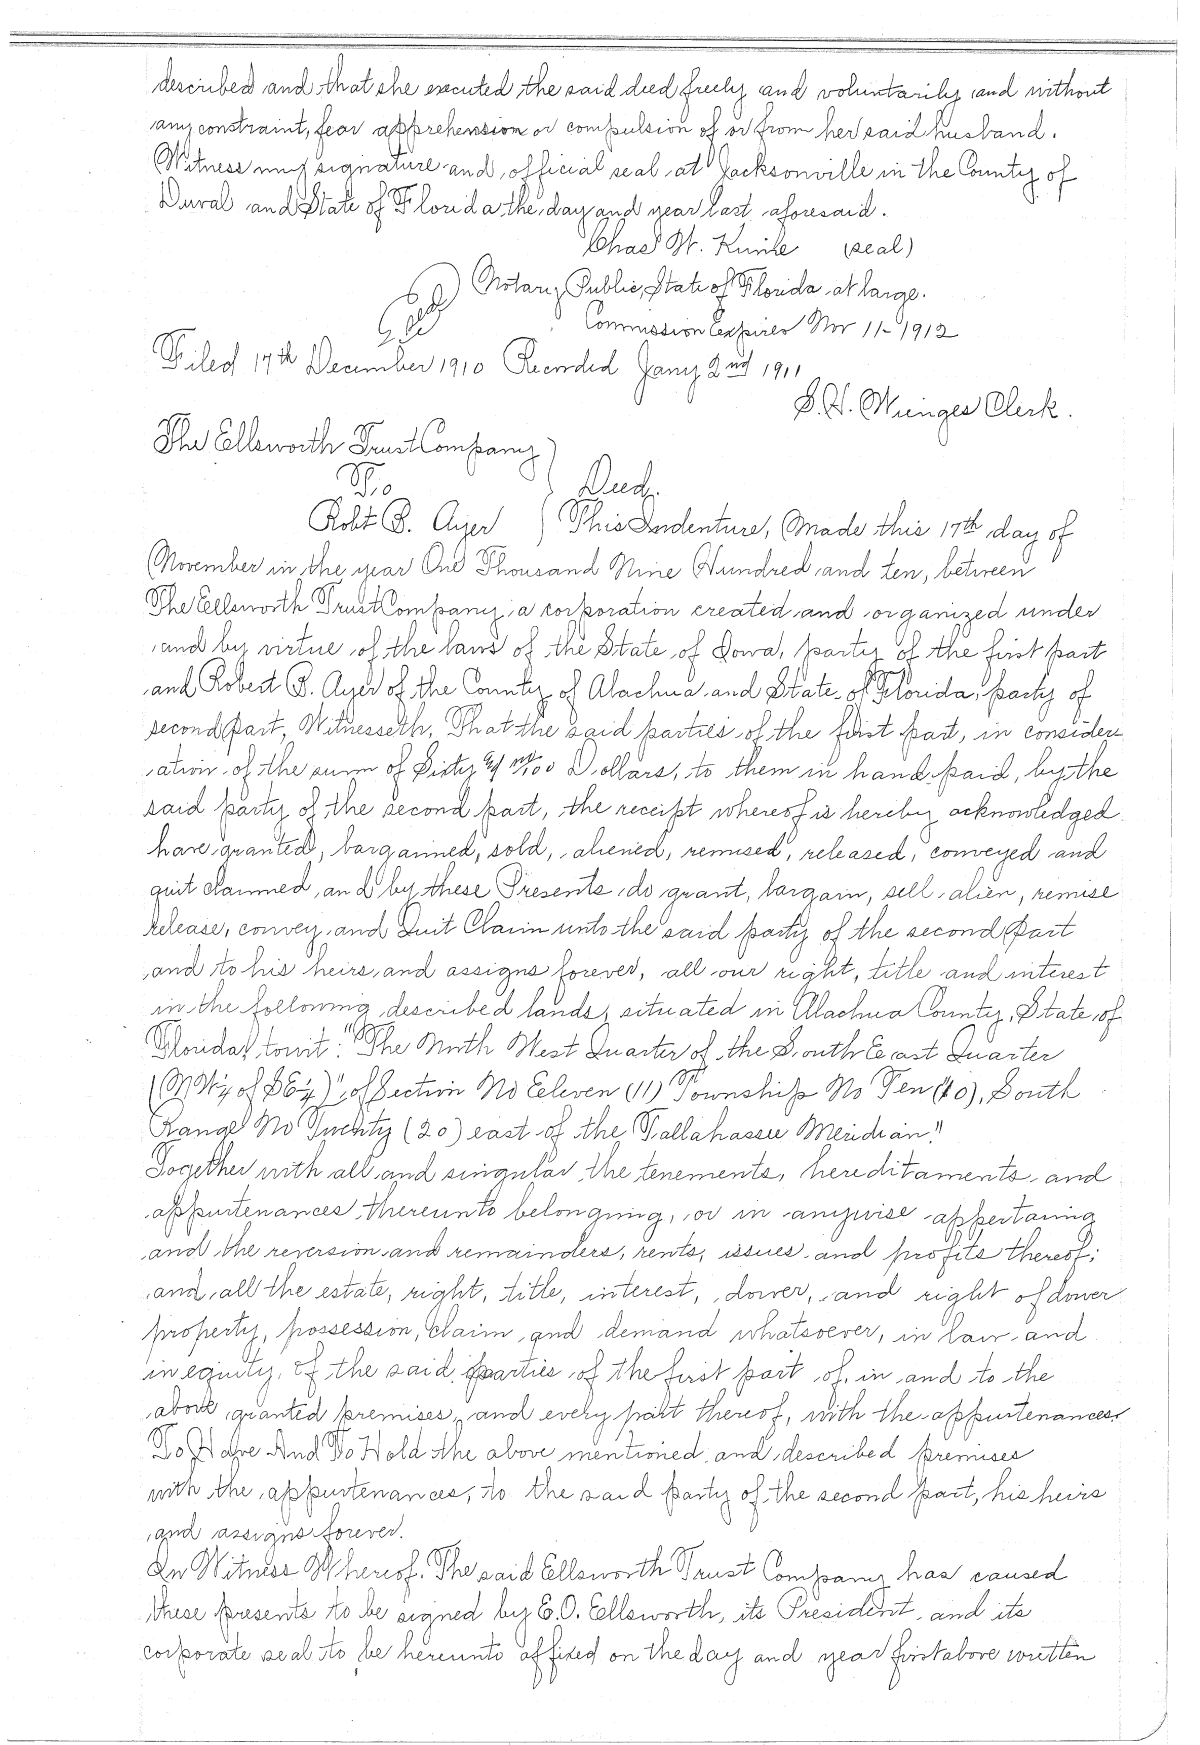 described and that she executed the said deed freely and voluntarily and without
any constraint, fear apprehension or compulsion of or from her said husband.
Witness my signature and official seal at Jacksonville in the County of
Duval and State of Florida the day and year last aforesaid.
Chas W. (seal)
Notary Public, State of Florida at large.
Seal
Commission Expires Nov 11-1912
Filed 17th December 1910 Recorded Jany 2nd 1911
S.H. Wienges Clerk.
The Ellsworth Trust Company
To Deed.
Robt B. Ayer This Indenture, Made this 17th day of
November in the year One Thousand Nine Hundred and ten, between
The Ellsworth Trust Company, a corporation created and organized under
and by virtue of the laws of the State of Iowa, party of the first part
and Robert B. Ayer of the County of Alachua and State of Florida, party of
second Part, Witnesseth, That the said parties of the first part, in consider
ation of the sum of Sixty & no/100 Dollars, to them in hand paid, by the
said party of the second part, the receipt whereof is hereby acknowledged
have granted, bargained, sold, aliened, remised, released, conveyed and
quit claimed, and by these Presents do grant, bargain, sell, alien, remise
release, convey and Quit Claim unto the said party of the second Part
and to his heirs and assigns forever, all our right, title and interest
in the following described lands, situated in Alachua County, State of
Florida, towit: "The North West Quarter of the South East Quarter
(NW¼ of SE¼)", of Section No Eleven (11) Township No Ten (10), South
Range No Twenty (20) east of the Tallahassee Meridian."
Together with all and singular the tenements, hereditaments and
appurtenances thereunto belonging, or in anywise appertaining
and the reversion and remainders, rents, issues and profits thereof;
and all the estate, right, title, interest, dower, and right of dower
property, possession, claim and demand whatsoever, in law and
in equity, of the said parties of the first part of, in and to the
above granted premises, and every part thereof, with the appurtenances.
To Have And To Hold the above mentioned and described premises
with the appurtenances, to the said party of the second part, his heirs
and assigns forever.
In Witness Whereof. The said Ellsworth Trust Company has caused
these presents to be signed by E.O. Ellsworth, its President and its
corporate seal to be hereunto affixed on the day and year first above written